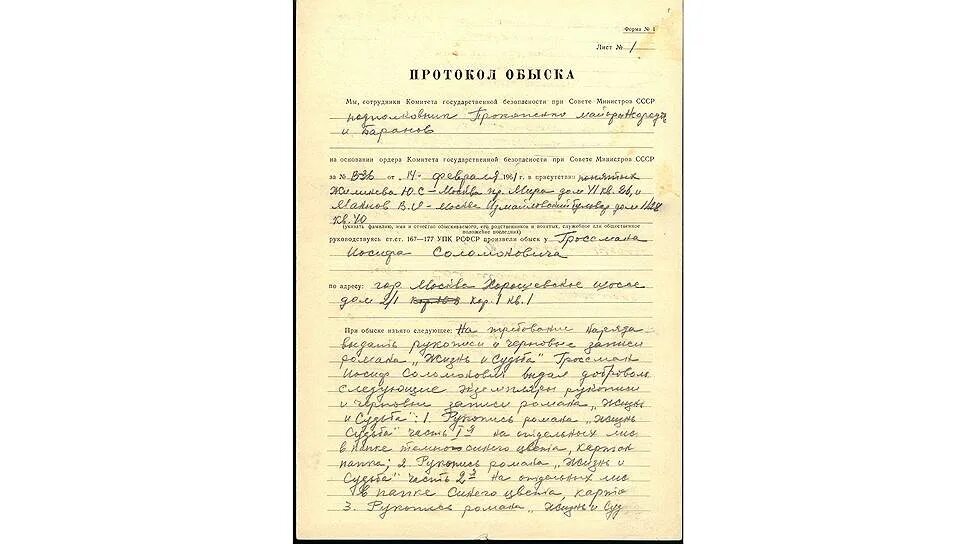 Форма № 1
Лист № 1
ПРОТОКОЛ ОБЫСКА
Мы, сотрудники Комитета государственной безопасности при Совете Министров СССР
подполковник Прокопенко майоры Нефедов
и Баранов
на основании ордера Комитета государственной безопасности при Совете Министров СССР
за № В-36 от „14" февраля 1961 г. в присутствии понятых
Ю.С – Москва пр. Мира дом 41 кв. и
В.И – Москва Измайловский бульвар дом
кв. 40
(указать фамилию, имя и отчество обыскиваемого, его родственников и понятых, служебное или общественное
положение последних)
руководствуясь ст.ст. 167—177 УПК РСФСР произвели обыск у Гроссмана
Иосифа Соломоновича
по адресу: гор. Москва Хорошевское шоссе
дом 2/1 кор. 1 кв. 1
При обыске изъято следующее: На требование наряда
выдать рукописи и черновые записи
романа „Жизнь и Судьба" Гроссман
Иосиф Соломонович выдал доброволь
следующие экземпляры рукописи
и черновые записи романа „Жизнь
и Судьба": 1. Рукопись романа „Жизнь
Судьба" часть Iя на отдельных лис
в папке темно-синего цвета, картон
папка; 2. Рукопись романа „Жизнь и
Судьба" часть 2я на отдельных лис
в папке синего цвета, карто
3. Рукопись романа „Жизнь и Суд